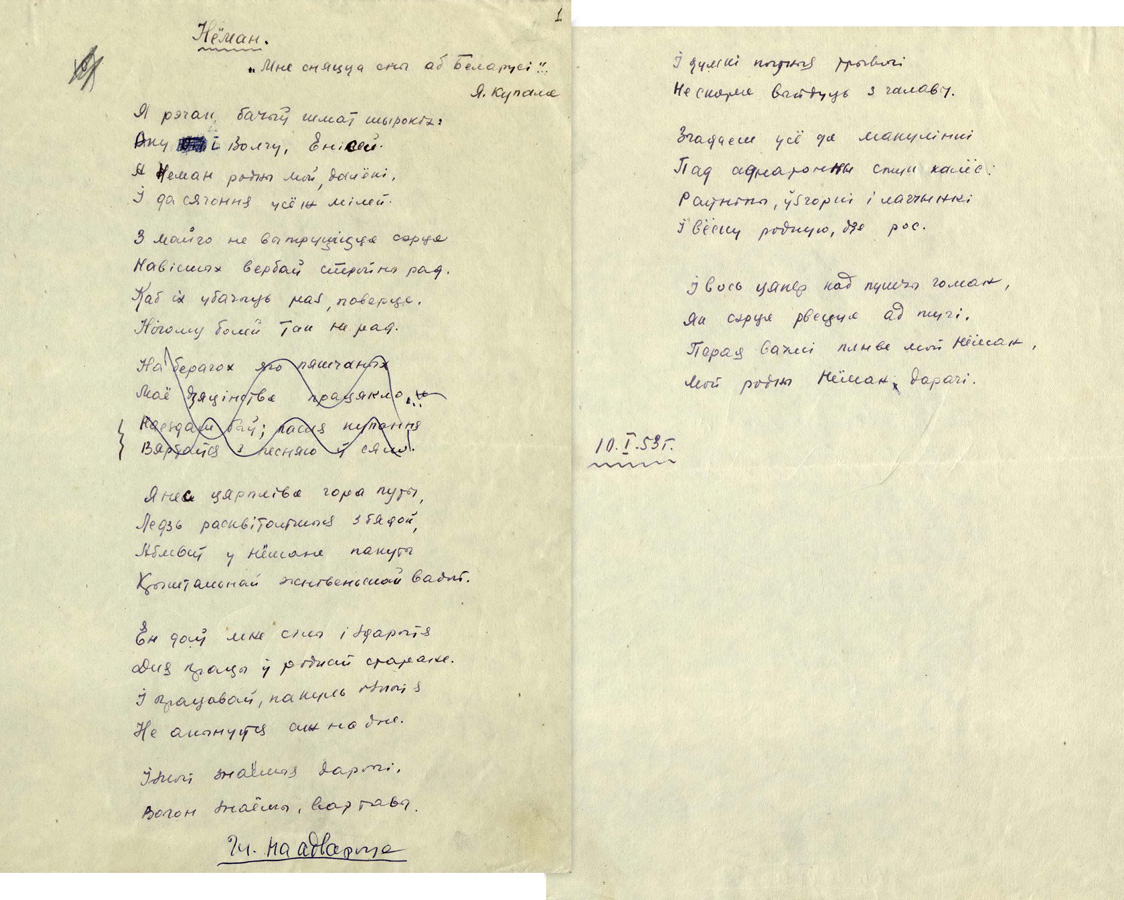 1
Нёман.
„Мне сняцца сны аб Беларусі"!..
Я. Купала
Я рэчак бачыў шмат шырокіх:
Аку і Волгу, Енісей.
А Нёман родны мой, далёкі,
І да сягоння ўсіх мілей.
З майго не выпруціцца сэрца
Навіслых вербаў стройны рад.
Каб іх убачыць мне, поверце,
Нічому болей так не рад.
На берагох яго пяшчаных
Маё дзяцінства працякло...
Вяртаўся з песняю ў сяло.
Я нёс цярпліва гора путы,
Ледзь расквітаўшыся з бядой,
Абмыў у Нёмане пакуты
Крыштальнай жывеньшай вадой.
Ён даў мне сілы і здароўя
Для працы ў роднай старане.
І працаваў, пакуль
Не апынуўся на дне.
знаёмыя дарогі,
Вагон знаёмы, вартавы.
Гл. на адвароце
І думкі поўныя трывогі
Не скора выйдуць з галавы.
Згадаеш усё да макулінкі
Пад аднатонны спеў калёс:
Раўніны, ўзгоркі і лагчынкі
І вёску родную, дзе рос.
І вось цяпер над пушчы гоман,
Як сэрца рвецца ад тугі.
Парая важкі плыве мой Нёман,
Мой родны Нёман, дарагі.
10.I.53г.